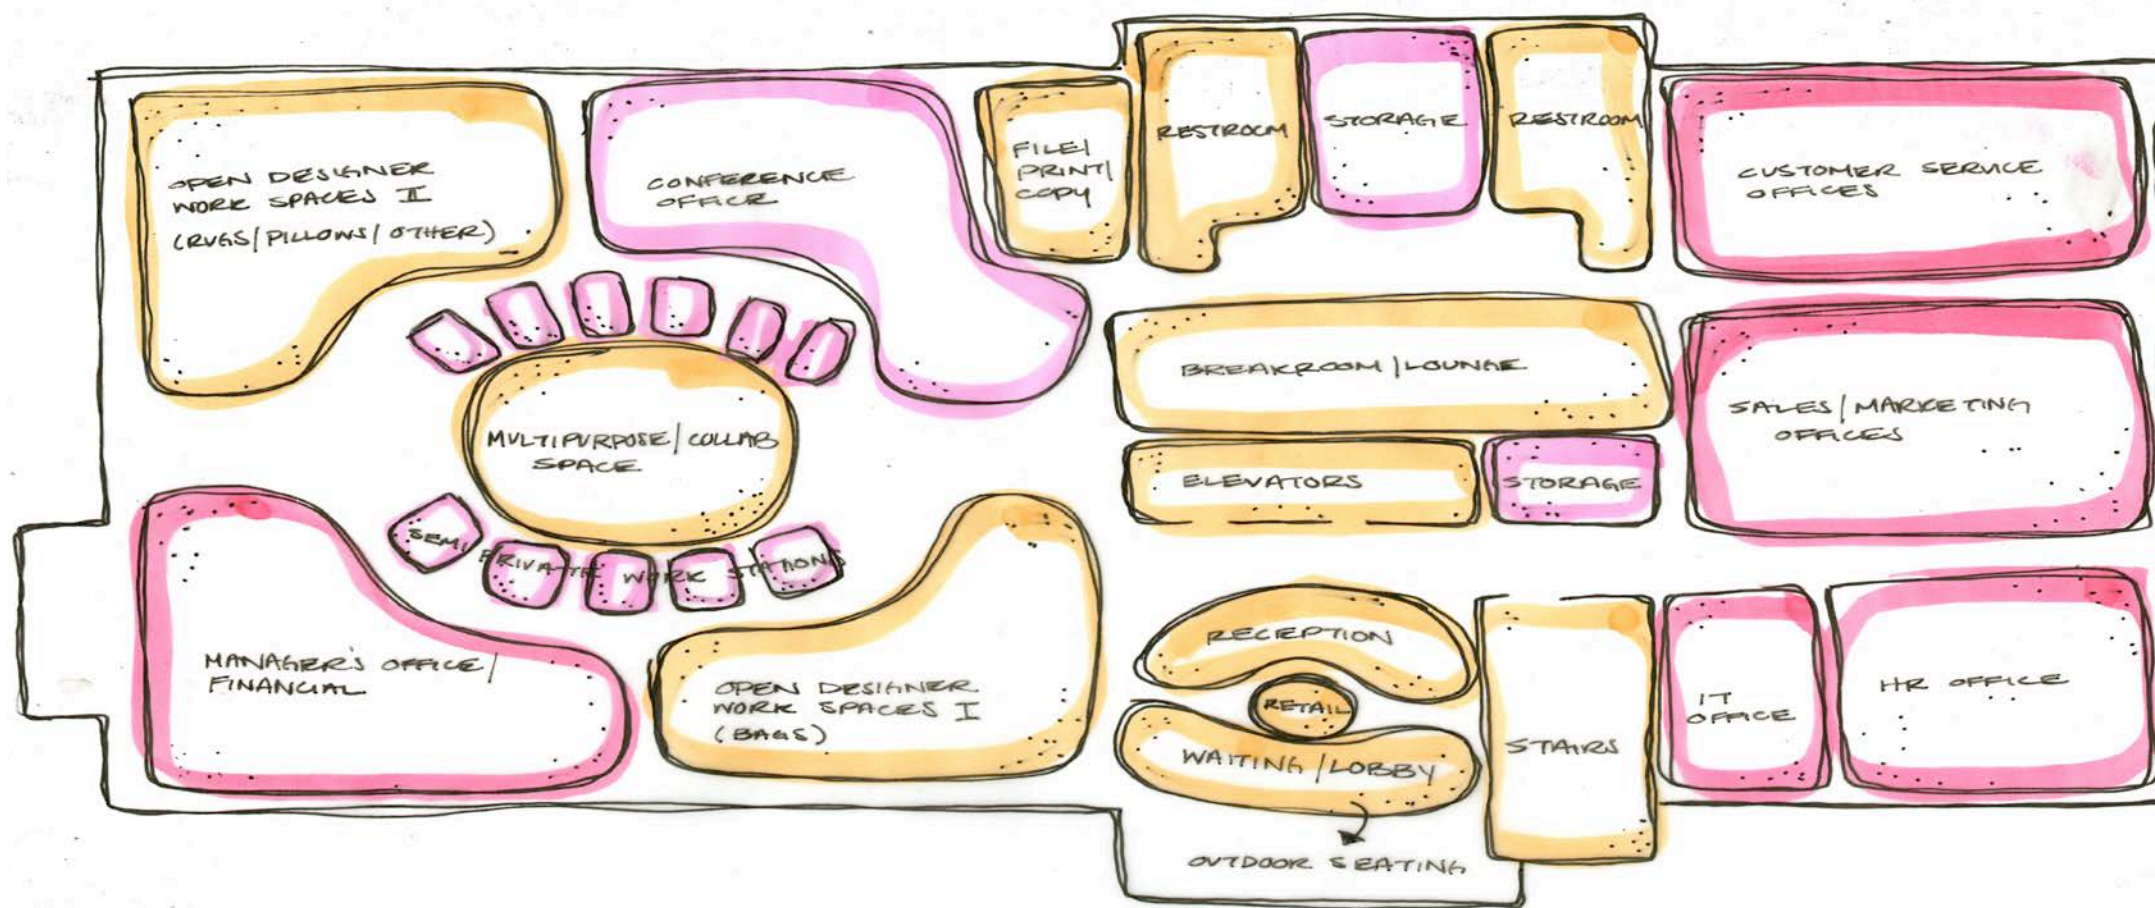 OPEN DESIGNER
WORK SPACES II
(RUGS/PILLOWS/OTHER)
CONFERENCE
OFFICE
FILE/
PRINT/
COPY
RESTROOM
STORAGE
RESTROOM
CUSTOMER SERVICE
OFFICES
MULTIPURPOSE/COLLAB
SPACE
BREAKROOM/LOUNGE
SALES/MARKETING
OFFICES
ELEVATORS
STORAGE
SEMI PRIVATE WORK STATIONS
MANAGER'S OFFICE/
FINANCIAL
OPEN DESIGNER
WORK SPACES I
(BAGS)
RECEPTION
RETAIL
WAITING/LOBBY
STAIRS
IT
OFFICE
HR OFFICE
OUTDOOR SEATING